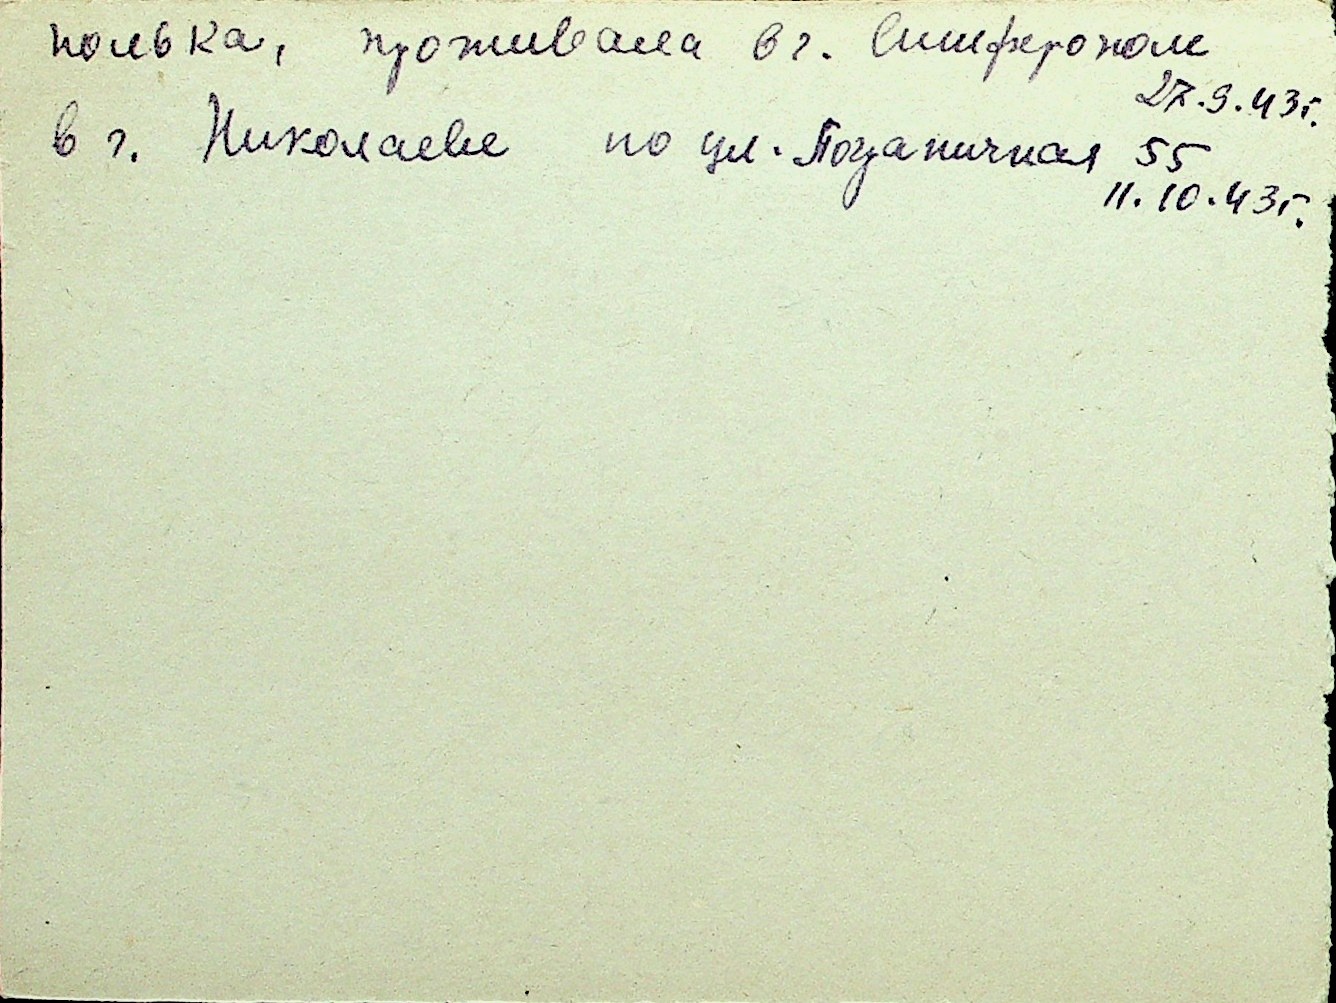 полька, проживала в г. Симферополе
27.9.43г.
в г. Николаеве по ул. Пограничная 55
11.10.43г.